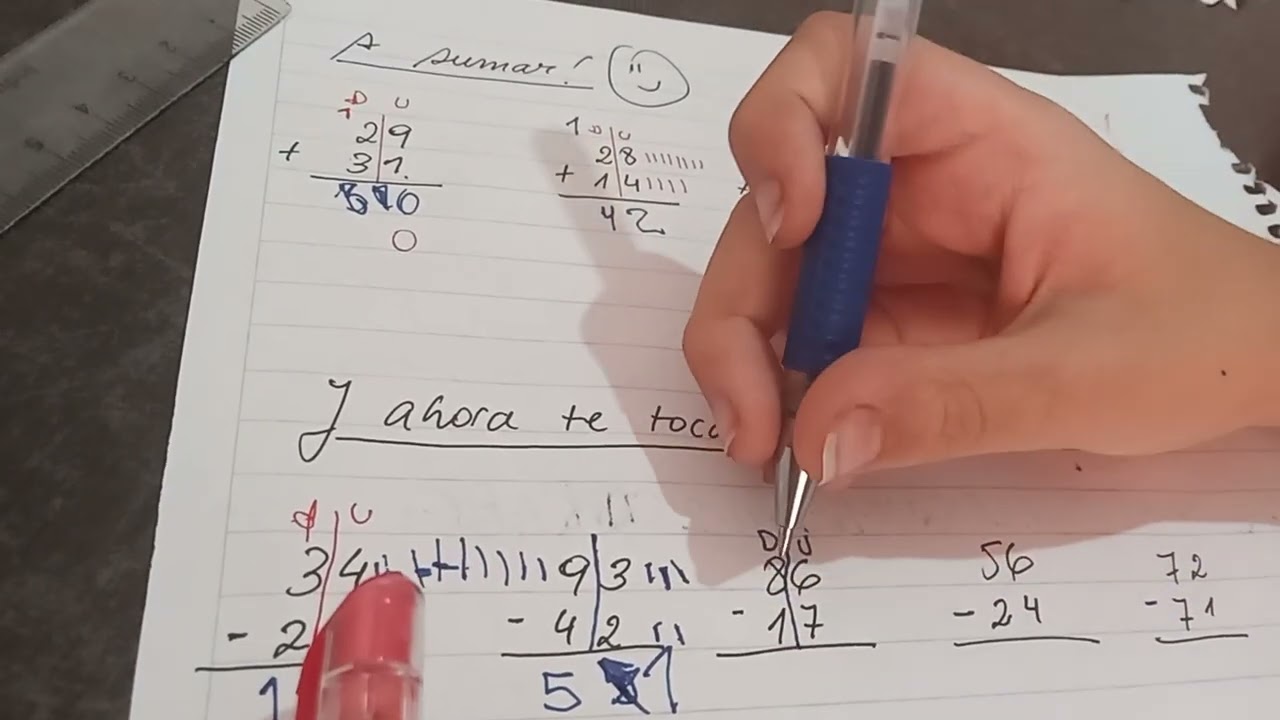 A sumar!
D U
1
29
+ 31.
0
0
1 D U
28
+ 14
42
Y ahora te
d U
34
- 2
1
93
- 42
5 1
D U
86
- 17
56
- 24
72
- 71